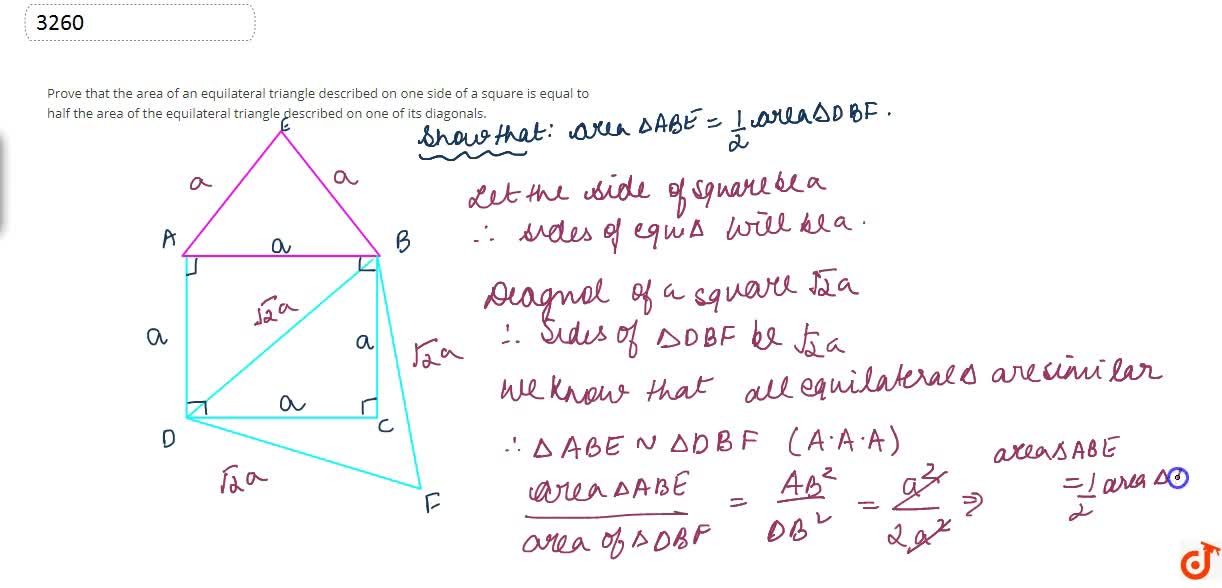 3260
Prove that the area of an equilateral triangle described on one side of a square is equal to
half the area of the equilateral triangle described on one of its diagonals.
Show that: area ΔABE = 1/2 area ΔDBF.
E
a a
Let the side of square be a
∴ sides of equi Δ will be a.
A a B
Diagnol of a square √2a
√2a
∴ Sides of ΔDBF be √2a
a a √2a
We know that all equilateral Δ are similar
a
D C
∴ Δ ABE ~ ΔDBF (A·A·A)
√2a
F
area ΔABE / area of ΔDBF = AB² / DB² = a² / 2a² ⇒
area Δ ABE
= 1/2 area Δ